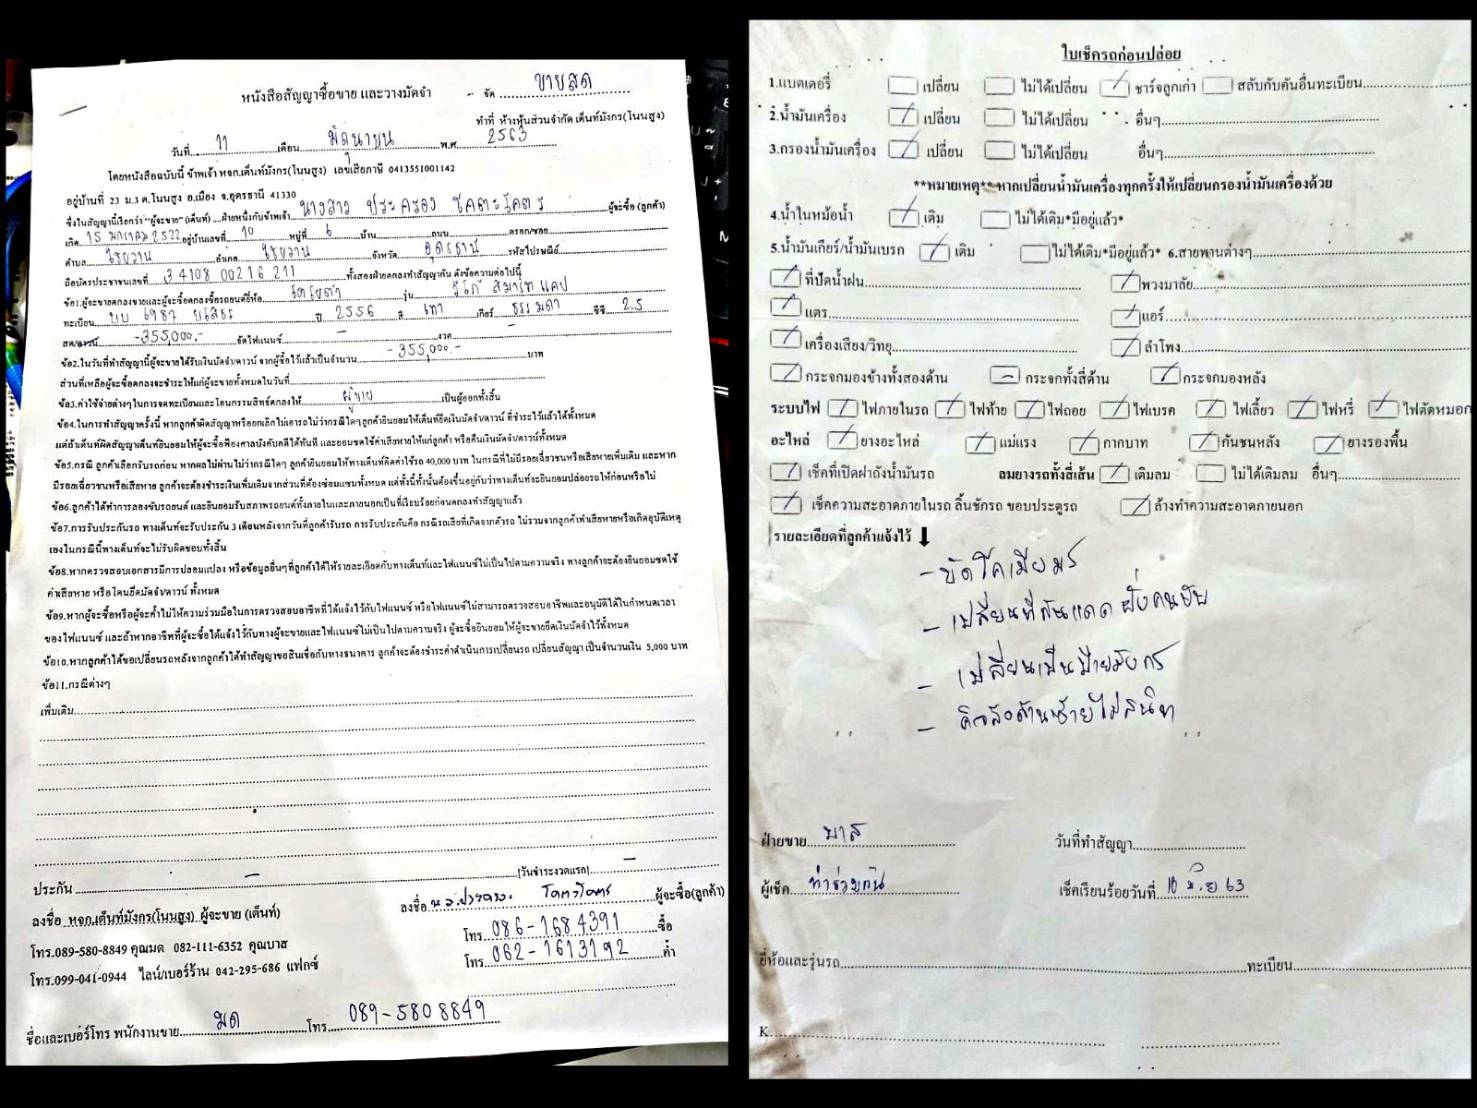 หนังสือสัญญาซื้อขาย และวางมัดจำ - จัด ขายสด
ทำที่ ห้างหุ้นส่วนจำกัด เต็นท์มังกร(โนนสูง)
วันที่ 11 เดือน มิถุนายน พ.ศ. 2563
โดยหนังสือฉบับนี้ ข้าพเจ้า หจก.เต็นท์มังกร(โนนสูง) เลขเสียภาษี 0413551001142
อยู่บ้านที่ 23 ม.3 ต.โนนสูง อ.เมือง จ.อุดรธานี 41330
ซึ่งในสัญญานี้เรียกว่า "ผู้จะขาย" (เต็นท์)....ฝ่ายหนึ่งกับข้าพเจ้า นางสาว ประครอง โคตะโคตร ผู้จะซื้อ (ลูกค้า)
เกิด 15 มกราคม 2522 อยู่บ้านเลขที่ 10 หมู่ที่ 6 บ้าน ถนน ตรอก/ซอย
ตำบล ไชยวาน อำเภอ ไชยวาน จังหวัด อุดรธานี รหัสไปรษณีย์
ถือบัตรประชาชนเลขที่ 34108 00216 211 ทั้งสองฝ่ายตกลงทำสัญญากัน ดังข้อความต่อไปนี้
ข้อ1.ผู้จะขายตกลงขายและผู้จะซื้อตกลงซื้อรถยนต์ยี่ห้อ โตโยต้า รุ่น วีโก้ สมาร์ท แคป
ทะเบียน บบ 6987 ยโสธร ปี 2556 สี เทา เกียร์ ธรรมดา ซีซี 2.5
สด/ดาวน์ -355,000.- จัดไฟแนนซ์ - งวด -
ข้อ2.ในวันที่ทำสัญญานี้ผู้จะขายได้รับเงินมัดจำ/ดาวน์ จากผู้ซื้อไว้แล้วเป็นจำนวน -355,000.- บาท
ส่วนที่เหลือผู้จะซื้อตกลงจะชำระให้แก่ผู้จะขายทั้งหมดในวันที่
ข้อ3.ค่าใช้จ่ายต่างๆในการจดทะเบียนและโอนกรรมสิทธิ์ตกลงให้ ผู้ขาย เป็นผู้ออกทั้งสิ้น
ข้อ4.ในการทำสัญญาครั้งนี้ หากลูกค้าผิดสัญญาหรือยกเลิกไม่เอารถไม่ว่ากรณีใดๆลูกค้ายินยอมให้เต็นท์ยึดเงินมัดจำ/ดาวน์ ที่ชำระไว้แล้วได้ทั้งหมด
แต่ถ้าเต็นท์ผิดสัญญาเต็นท์ยินยอมให้ผู้จะซื้อฟ้องศาลบังคับคดีได้ทันที และยอมชดใช้ค่าเสียหายให้แก่ลูกค้า หรือคืนเงินมัดจำ/ดาวน์ทั้งหมด
ข้อ5.กรณี ลูกค้าเลือกรับรถก่อน หากผลไม่ผ่านไม่ว่ากรณีใดๆ ลูกค้ายินยอมให้ทางเต็นท์คิดค่าใช้รถ 40,000 บาท ในกรณีที่ไม่มีรอยเฉี่ยวชนหรือเสียหายเพิ่มเติม และหาก
มีรอยเฉี่ยวชนหรือเสียหาย ลูกค้าจะต้องชำระเงินเพิ่มเติมจากส่วนที่ต้องซ่อมแซมทั้งหมด แต่ทั้งนี้ทั้งนั้นต้องขึ้นอยู่กับว่าทางเต็นท์จะยินยอมปล่อยรถให้ก่อนหรือไม่
ข้อ6.ลูกค้าได้ทำการลองขับรถยนต์ และยินยอมรับสภาพรถยนต์ทั้งภายในและภายนอกเป็นที่เรียบร้อยก่อนตกลงทำสัญญาแล้ว
ข้อ7.การรับประกันรถ ทางเต็นท์จะรับประกัน 3 เดือนหลังจากวันที่ลูกค้ารับรถ การรับประกันคือ กรณีรถเสียที่เกิดจากตัวรถ ไม่รวมจากลูกค้าทำเสียหายหรือเกิดอุบัติเหตุ
เองในกรณีนี้ทางเต็นท์จะไม่รับผิดชอบทั้งสิ้น
ข้อ8.หากตรวจสอบเอกสารมีการปลอมแปลง หรือข้อมูลอื่นๆที่ลูกค้าได้ให้รายละเอียดกับทางเต็นท์และไฟแนนซ์ไม่เป็นไปตามความจริง ทางลูกค้าจะต้องยินยอมชดใช้
ค่าเสียหาย หรือโดนยึดมัดจำ/ดาวน์ ทั้งหมด
ข้อ9.หากผู้จะซื้อหรือผู้จะค้ำไม่ให้ความร่วมมือในการตรวจสอบอาชีพที่ได้แจ้งไว้กับไฟแนนซ์ หรือไฟแนนซ์ไม่สามารถตรวจสอบอาชีพและอนุมัติได้ในกำหนดเวลา
ของไฟแนนซ์ และถ้าหากอาชีพที่ผู้จะซื้อได้แจ้งไว้กับทางผู้จะขายและไฟแนนซ์ไม่เป็นไปตามความจริง ผู้จะซื้อยินยอมให้ผู้จะขายยึดเงินมัดจำไว้ทั้งหมด
ข้อ10.หากลูกค้าได้ขอเปลี่ยนรถหลังจากลูกค้าได้ทำสัญญาขอสินเชื่อกับทางธนาคาร ลูกค้าจะต้องชำระค่าดำเนินการเปลี่ยนรถ เปลี่ยนสัญญา เป็นจำนวนเงิน 5,000 บาท
ข้อ11.กรณีต่างๆ
เพิ่มเติม
ประกัน - (วันชำระงวดแรก) -
ลงชื่อ หจก.เต็นท์มังกร(โนนสูง) ผู้จะขาย (เต็นท์) ลงชื่อ ผู้จะซื้อ(ลูกค้า)
โทร.089-580-8849 คุณมด 082-111-6352 คุณบาส โทร. 086-1684391 ซื้อ
โทร.099-041-0944 ไลน์/เบอร์ร้าน 042-295-686 แฟกซ์ โทร. 062-1613192 ค้ำ
ชื่อและเบอร์โทร พนักงานขาย มด โทร 089-5808849
ใบเช็ครถก่อนปล่อย
1.แบตเตอรี่ เปลี่ยน ไม่ได้เปลี่ยน ชาร์จลูกเก่า สลับกับคันอื่นทะเบียน
2.น้ำมันเครื่อง เปลี่ยน ไม่ได้เปลี่ยน อื่นๆ
3.กรองน้ำมันเครื่อง เปลี่ยน ไม่ได้เปลี่ยน อื่นๆ
**หมายเหตุ** หากเปลี่ยนน้ำมันเครื่องทุกครั้งให้เปลี่ยนกรองน้ำมันเครื่องด้วย
4.น้ำในหม้อน้ำ เติม ไม่ได้เติม*มีอยู่แล้ว*
5.น้ำมันเกียร์/น้ำมันเบรก เติม ไม่ได้เติม*มีอยู่แล้ว* 6.สายพานต่างๆ
ที่ปัดน้ำฝน พวงมาลัย
แตร แอร์
เครื่องเสียง/วิทยุ ลำโพง
กระจกมองข้างทั้งสองด้าน กระจกทั้งสี่ด้าน กระจกมองหลัง
ระบบไฟ ไฟภายในรถ ไฟท้าย ไฟถอย ไฟเบรค ไฟเลี้ยว ไฟหรี่ ไฟตัดหมอก
อะไหล่ ยางอะไหล่ แม่แรง กากบาท กันชนหลัง ยางรองพื้น
เช็คที่เปิดฝาถังน้ำมันรถ ลมยางรถทั้งสี่เส้น เติมลม ไม่ได้เติมลม อื่นๆ
เช็คความสะอาดภายในรถ ลิ้นชักรถ ขอบประตูรถ ล้างทำความสะอาดภายนอก
รายละเอียดที่ลูกค้าแจ้งไว้
- ขัดโคเมียมร
- เปลี่ยนที่กันแดด ฝั่งคนขับ
- เปลี่ยนเป็นป้ายมังกร
- ด้านซ้ายไม่สนิท
ฝ่ายขาย บาส วันที่ทำสัญญา
ผู้เช็ค ทำร่วมกัน เช็คเรียบร้อยวันที่ 10 มิ.ย 63
ยี่ห้อและรุ่นรถ ทะเบียน
K